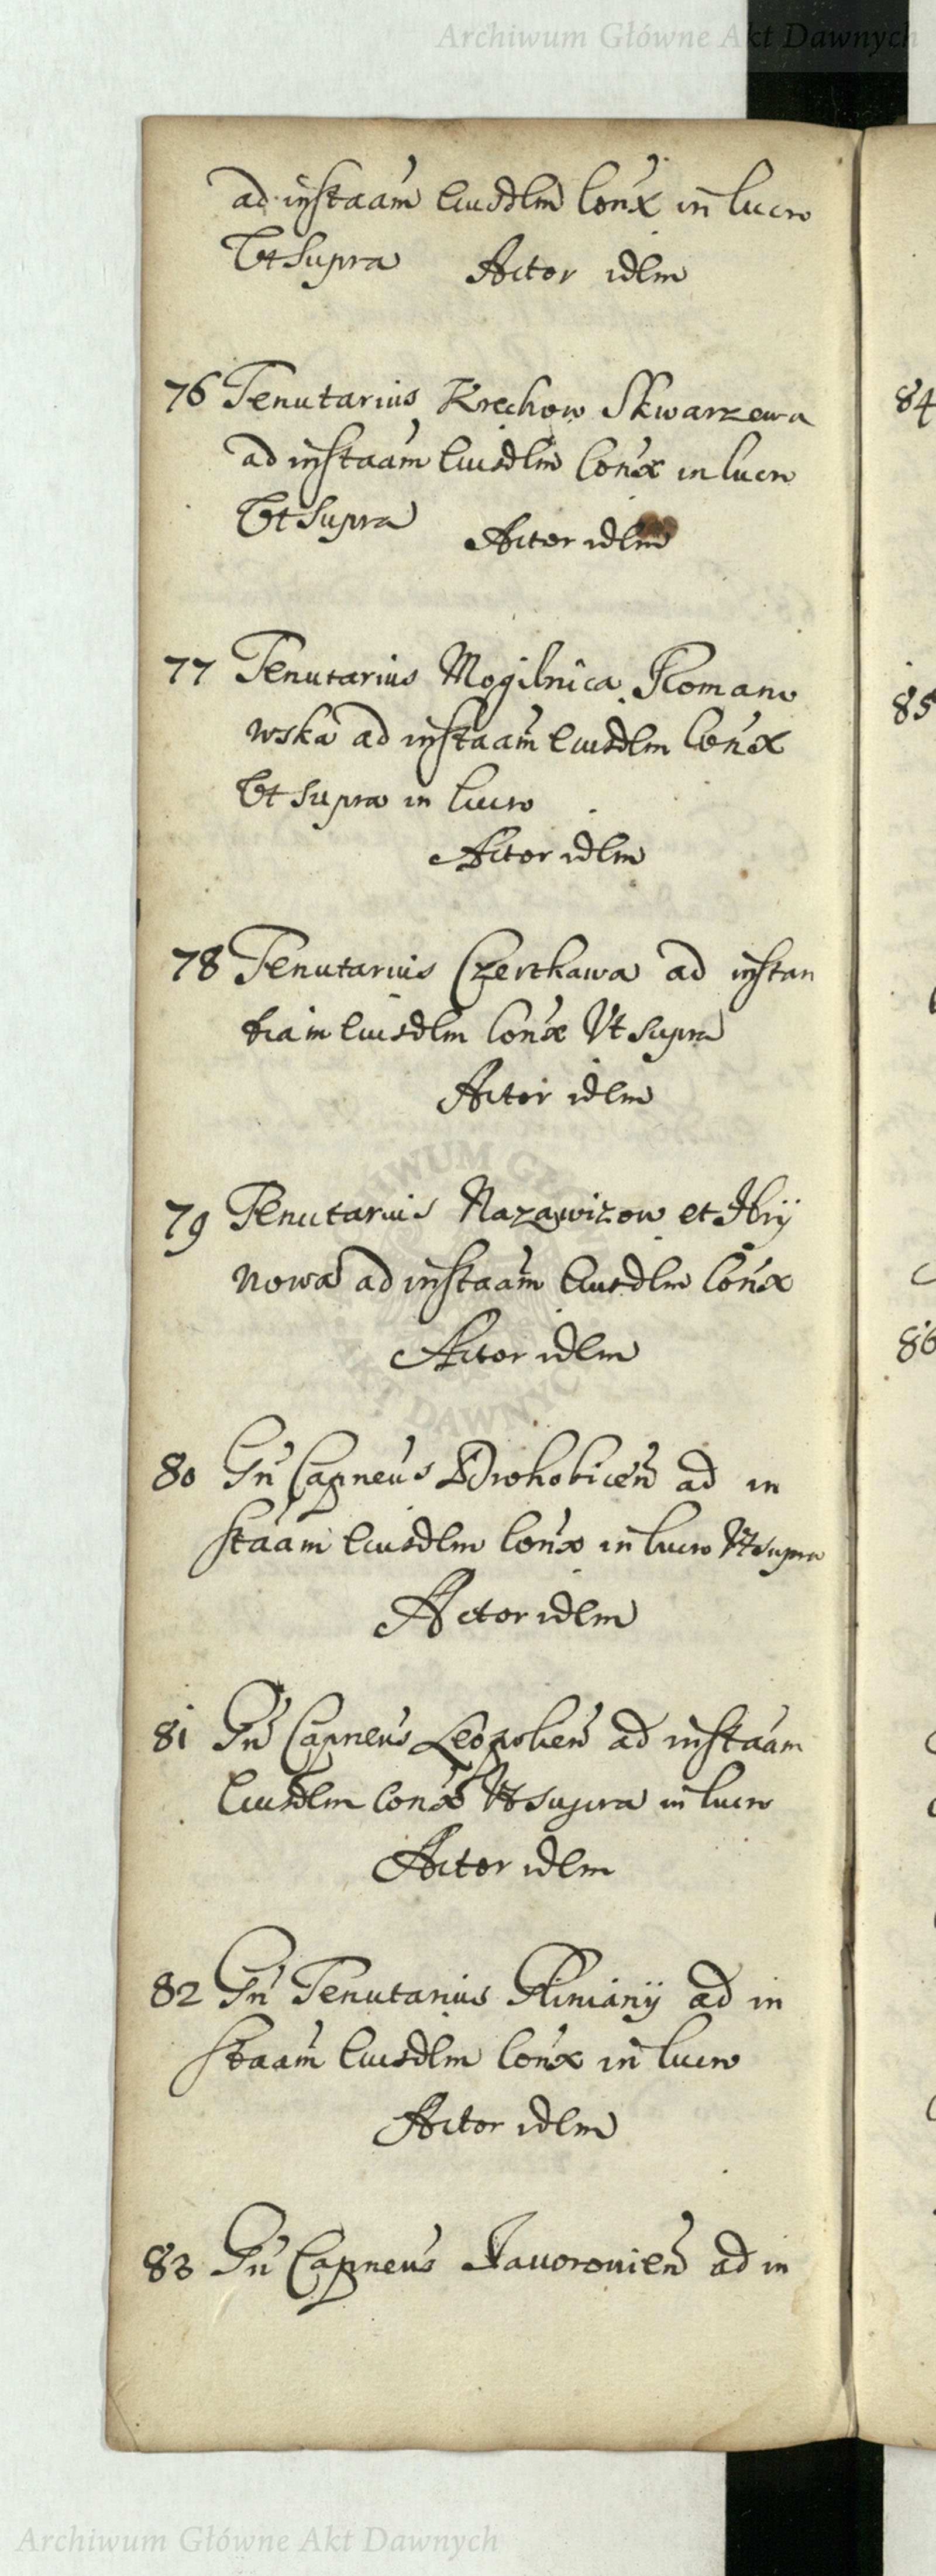 Archiwum Główne Akt Dawnych
ad instãam Eiusdẽm Con̄x in lucro
Vt Supra Actor idẽm
76 Tenutarius Krechow Skwarzewa
ad instãam Eiusdẽm Con̄x in lucro
Vt Supra
Actor idẽm
77 Tenutarius Mogilnica Romano
wska ad instãam Eiusdẽm Con̄x
Vt Supra in lucro
Actor idẽm
78 Tenutarius Czerchawa ad instan
tiam Eiusdẽm Con̄x Vt Supra
Actor idẽm
79 Tenutarius Nazawizow et Hrij
nowa ad instãam Eiusdẽm Con̄x
Actor idẽm
80 Gn̄ Capneus Drohobicen̄ ad in
stãam Eiusdẽm Con̄x in lucro Vt supra
Actor idẽm
81 Gn̄ Capneus Leopolien̄ ad instãam
Eiusdẽm Con̄x Vt supra in lucro
Actor idẽm
82 Gn̄ Tenutarius Glinianij ad in
stãam Eiusdẽm Con̄x in lucro
Actor idẽm
83 Gn̄ Capneus Javorovien̄ ad in
84
85
86
Archiwum Główne Akt Dawnych